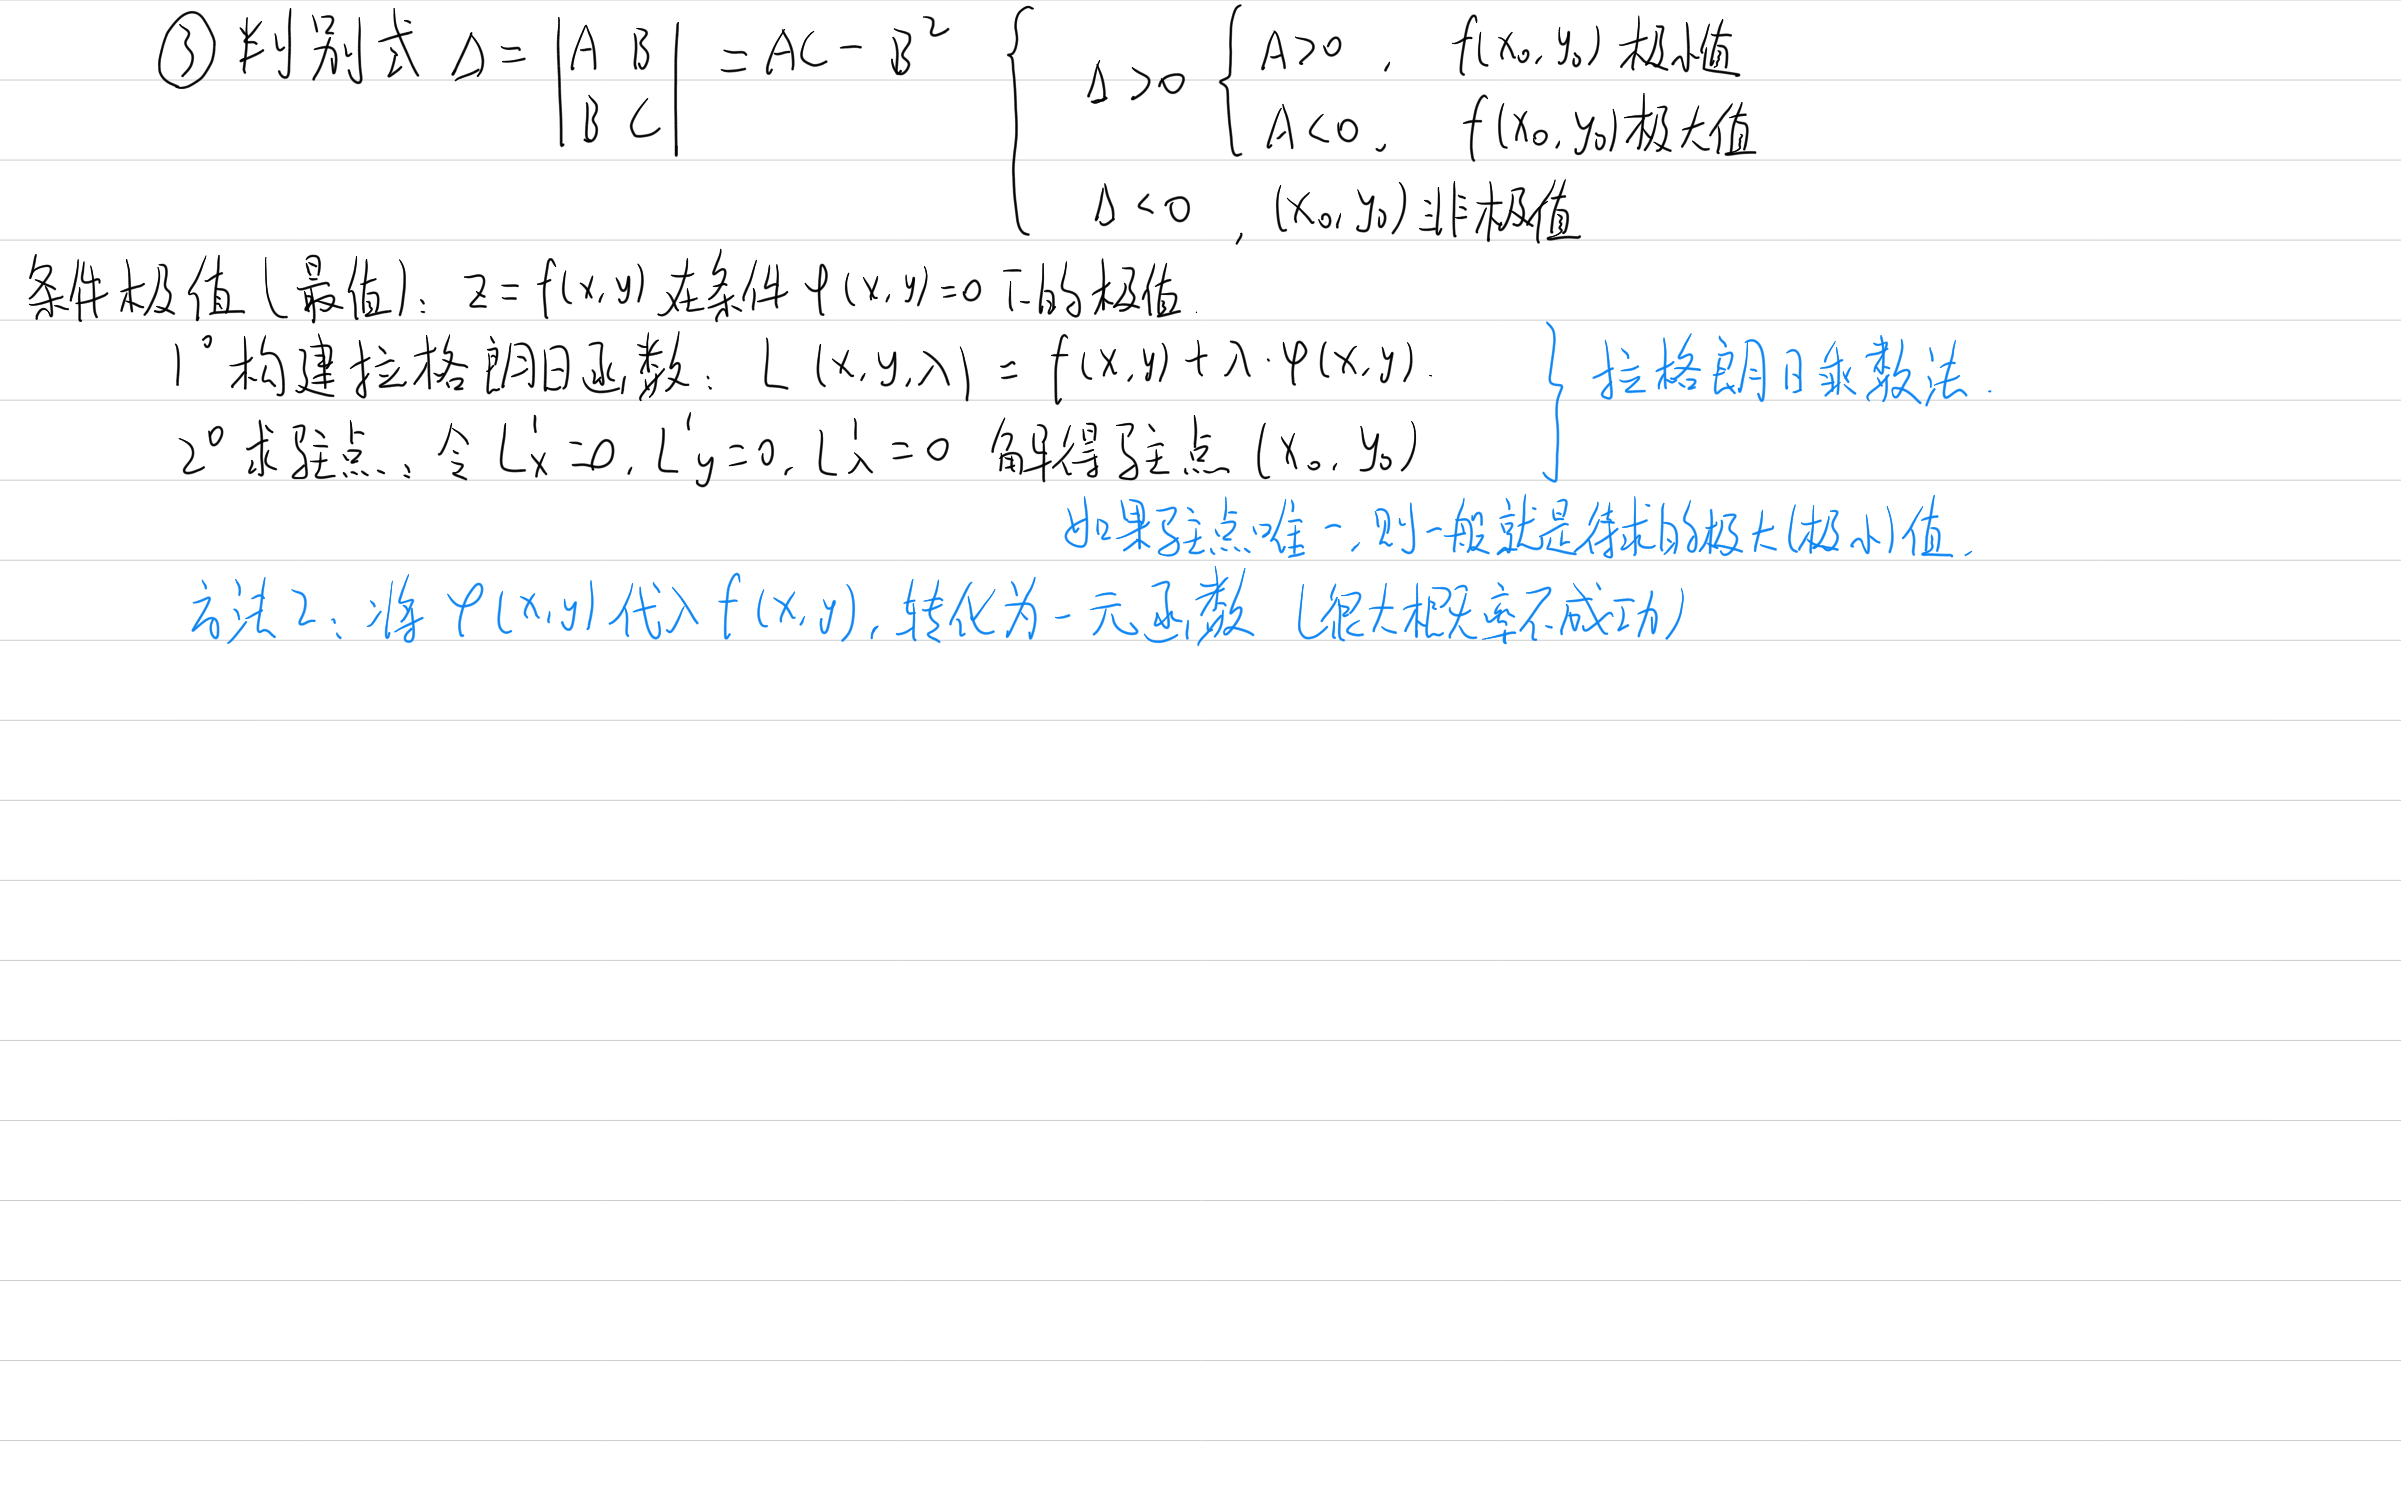 ③ 判别式 Δ = |A B| = AC - B² { Δ>0 { A>0, f(x₀,y₀) 极小值
|B C| A<0, f(x₀,y₀) 极大值
Δ<0, (x₀,y₀) 非极值
条件极值(最值): z=f(x,y) 在条件 φ(x,y)=0 下的极值.
1° 构建拉格朗日函数: L(x,y,λ) = f(x,y) + λ·φ(x,y). } 拉格朗日乘数法.
2° 求驻点: 令 L'x=0, L'y=0, L'λ=0 解得驻点 (x₀, y₀)
如果驻点唯一,则一般就是待求的极大(极小)值.
方法2: 将 φ(x,y) 代入 f(x,y), 转化为一元函数 (很大概率不成功)